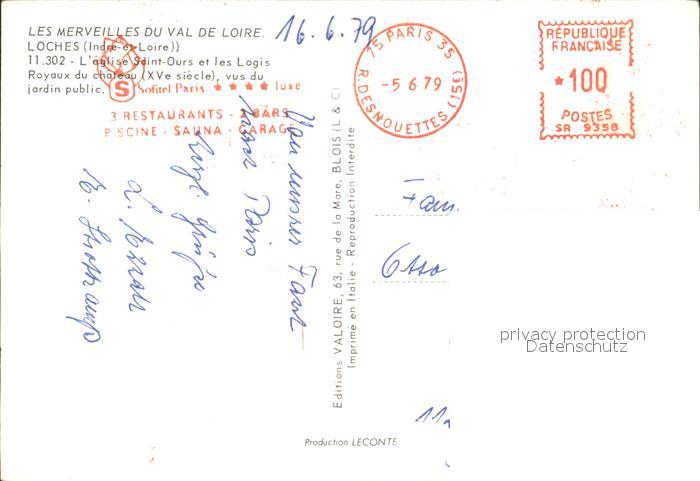 LES MERVEILLES DU VAL DE LOIRE.
LOCHES (Indre-et-Loire))
11.302 - L'église Saint-Ours et les Logis
Royaux du château (XVe siècle), vus du
jardin public.
16.6.79
S Sofitel Paris ★★★★ luxe
3 RESTAURANTS - 2 BARS
PISCINE - SAUNA - GARAGE
75 PARIS 35
-5 6 79
R. DESNOUETTES (15E)
RÉPUBLIQUE
FRANÇAISE
★100
POSTES
SR 9358
Von unserer Fahrt
nach Paris
herzl. Grüße
Editions VALOIRE, 63, rue de la Mare, BLOIS (L & C)
Imprimé en Italie - Reproduction Interdite
Fam.
Otto
11a
privacy protection
Datenschutz
Production LECONTE